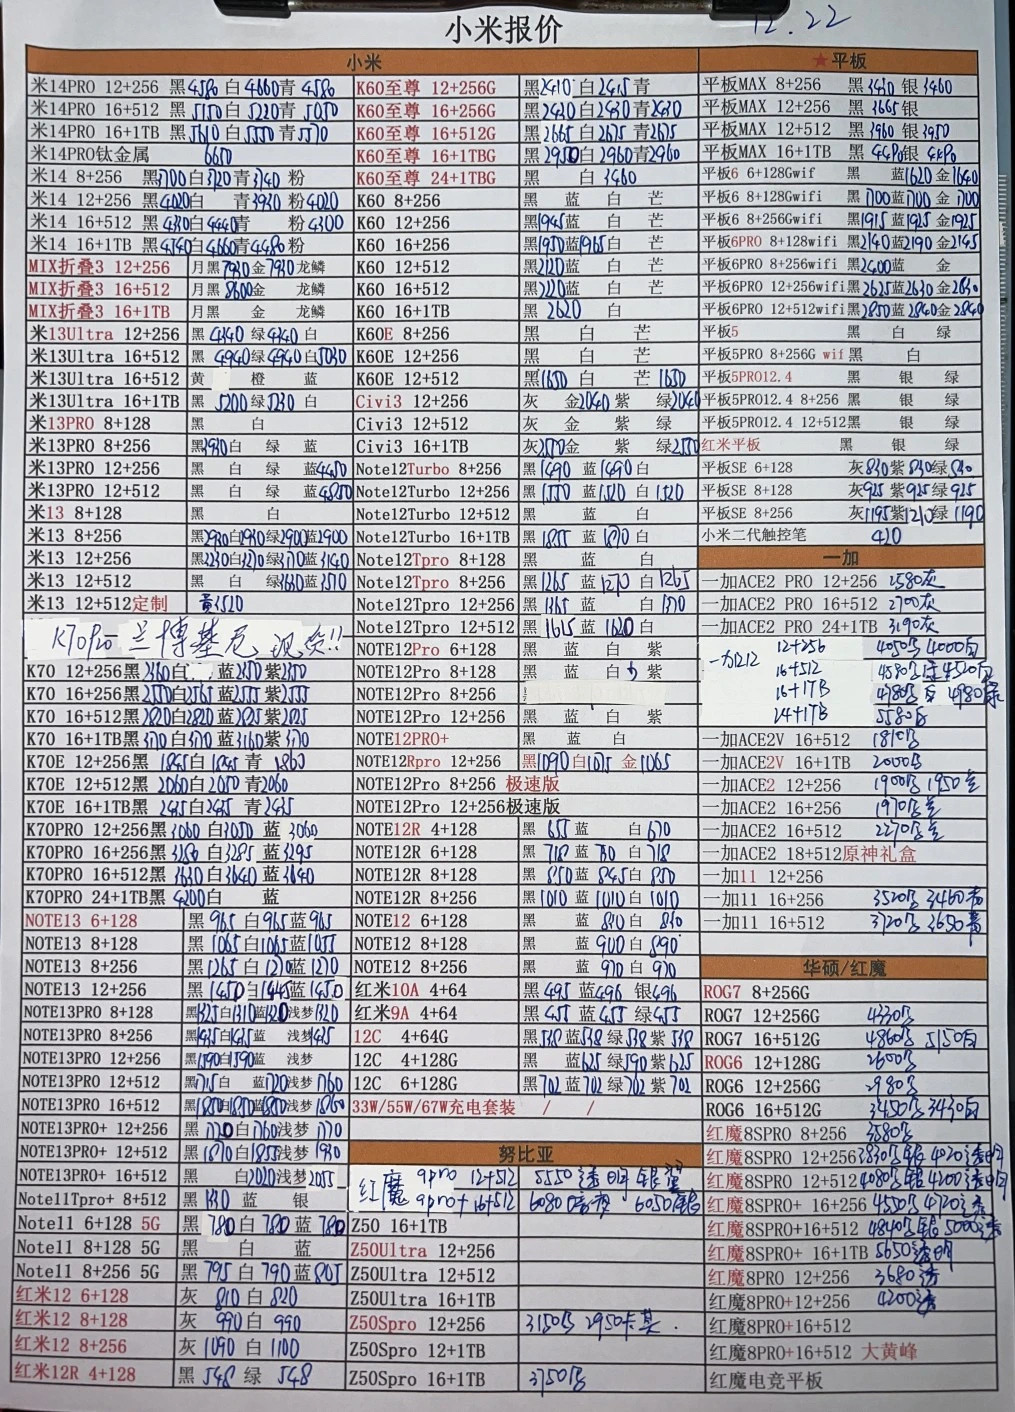 12.22
小米报价
小米
米14PRO 12+256 黑4580 白4660青 4580
米14PRO 16+512 黑 5150白 5220青 5050
米14PRO 16+1TB 黑5610 白5550青5570
米14PRO钛金属 6650
米14 8+256 黑3700白3720青3740 粉
米14 12+256 黑4020白 青3930 粉4020
米14 16+512 黑4330白4440青 粉4300
米14 16+1TB 黑4740白4660青4480粉
MIX折叠3 12+256 月黑7930金7930龙鳞
MIX折叠3 16+512 月黑8600金 龙鳞
MIX折叠3 16+1TB 月黑 金 龙鳞
米13Ultra 12+256 黑 4340 绿4340白
米13Ultra 16+512 黑 4940绿4940白5030
米13Ultra 16+512 黄 橙 蓝
米13Ultra 16+1TB 黑 5200绿5230 白
米13PRO 8+128 黑 白
米13PRO 8+256 黑3930白 绿 蓝
米13PRO 12+256 黑 白 绿 蓝4450
米13PRO 12+512 黑 白 绿 蓝4850
米13 8+128 黑 白
米13 8+256 黑2930白2930绿2900蓝2900
米13 12+256 黑3230白3270绿3170蓝3140
米13 12+512 黑 白 绿3630蓝3570
米13 12+512定制 黄3520
K70Pro 兰博基尼 现货!!
K70 12+256黑2360白 蓝2350紫2350
K70 16+256黑2550白2565蓝2555紫2555
K70 16+512黑2820白2820蓝2825紫2825
K70 16+1TB黑3170白3170蓝3160紫3170
K70E 12+256黑 1845白1845 青1860
K70E 12+512黑 2060白2050 青2060
K70E 16+1TB黑 2435白2435 青2435
K70PRO 12+256黑3060 白3050 蓝 3060
K70PRO 16+256黑3280 白3285 蓝3295
K70PRO 16+512黑3630白3640 蓝3640
K70PRO 24+1TB黑 4200白 蓝
NOTE13 6+128 黑 965 白965蓝965
NOTE13 8+128 黑 1065白1065蓝1055
NOTE13 8+256 黑1265 白1270蓝1270
NOTE13 12+256 黑1450白1445蓝1450
NOTE13PRO 8+128 黑1325白1310蓝1320浅梦1320
NOTE13PRO 8+256 黑1435白1435蓝 浅梦1435
NOTE13PRO 12+256 黑1590白1590蓝 浅梦
NOTE13PRO 12+512 黑1715白 蓝1720浅梦1760
NOTE13PRO 16+512 黑1850白1850蓝1850浅梦1860
NOTE13PRO+ 12+256 黑1720白1760浅梦1770
NOTE13PRO+ 12+512 黑1870白1855浅梦1930
NOTE13PRO+ 16+512 黑 白2020浅梦2055
Note11Tpro+ 8+512 黑1330 蓝 银
Note11 6+128 5G 黑 780白 780 蓝 780
Note11 8+128 5G 黑 白 蓝
Note11 8+256 5G 黑 795 白 790蓝805
红米12 6+128 灰 810白820
红米12 8+128 灰 990白 990
红米12 8+256 灰 1090白 1100
红米12R 4+128 黑 548 绿 548
K60至尊 12+256G 黑2410 白2415 青
K60至尊 16+256G 黑2430白2430青2430
K60至尊 16+512G 黑2665白2675 青2675
K60至尊 16+1TBG 黑 2950白2960青2960
K60至尊 24+1TBG 黑 白3460
K60 8+256 黑 蓝 白 芒
K60 12+256 黑1945蓝 白 芒
K60 16+256 黑1950蓝1965白 芒
K60 12+512 黑2120蓝 白 芒
K60 16+512 黑2220蓝 白 芒
K60 16+1TB 黑 2620 白
K60E 8+256 黑 白 芒
K60E 12+256 黑 白 芒
K60E 12+512 黑1650 白 芒 1650
Civi3 12+256 灰 金2040 紫 绿2040
Civi3 12+512 灰 金 紫 绿
Civi3 16+1TB 灰2570金 紫 绿2550
Note12Turbo 8+256 黑1490 蓝1490白
Note12Turbo 12+256 黑1550 蓝1520 白1520
Note12Turbo 12+512 黑 蓝 白
Note12Turbo 16+1TB 黑1855 蓝1870白
Note12Tpro 8+128 黑 蓝 白
Note12Tpro 8+256 黑1265 蓝1270白1265
Note12Tpro 12+256 黑1365 蓝 白1370
Note12Tpro 12+512 黑 1615 蓝1620白
NOTE12Pro 6+128 黑 蓝 白 紫
NOTE12Pro 8+128 黑 蓝 白 紫
NOTE12Pro 8+256
NOTE12Pro 12+256 黑 蓝 白 紫
NOTE12PRO+ 黑 蓝 白
NOTE12Rpro 12+256 黑1090白1075 金1065
NOTE12Pro 8+256 极速版
NOTE12Pro 12+256极速版
NOTE12R 4+128 黑 655 蓝 白670
NOTE12R 6+128 黑 718蓝 730 白 718
NOTE12R 8+128 黑 850蓝 845白 850
NOTE12R 8+256 黑 1010 蓝 1010 白1010
NOTE12 6+128 黑 蓝 810白 830
NOTE12 8+128 黑 蓝 900白890
NOTE12 8+256 黑 蓝 970白 970
红米10A 4+64 黑495 蓝496 银496
红米9A 4+64 黑 455 蓝 455 绿455
12C 4+64G 黑538 蓝538 绿538紫538
12C 4+128G 黑 蓝625绿590紫625
12C 6+128G 黑702 蓝702 绿702紫702
33W/55W/67W充电套装 / /
努比亚
红魔 9pro 12+512 5550透明 银翼
9pro+ 16+512 6080暗夜 6050银
Z50 16+1TB
Z50Ultra 12+256
Z50Ultra 12+512
Z50Ultra 16+1TB
Z50Spro 12+256 3150白 2950卡其
Z50Spro 12+1TB
Z50Spro 16+1TB 3750白
★平板
平板MAX 8+256 黑3430 银3460
平板MAX 12+256 黑3665银
平板MAX 12+512 黑3960 银3950
平板MAX 16+1TB 黑4490银 4490
平板6 6+128Gwif 黑 蓝1620金1640
平板6 8+128Gwifi 黑1700蓝1700 金1700
平板6 8+256Gwifi 黑1915蓝1925金1925
平板6PRO 8+128wifi 黑2140蓝2190金2145
平板6PRO 8+256wifi 黑2400蓝 金
平板6PRO 12+256wifi黑2625蓝2630金2630
平板6PRO 12+512wifi黑2850蓝2840金2840
平板5 黑 白 绿
平板5PRO 8+256G wif 黑 白
平板5PRO12.4 黑 银 绿
平板5PRO12.4 8+256 黑 银 绿
平板5PRO12.4 12+512黑 银 绿
红米平板 黑 银 绿
平板SE 6+128 灰830紫830绿830
平板SE 8+128 灰925紫925绿925
平板SE 8+256 灰1195紫1210绿1190
小米二代触控笔 420
一加
一加ACE2 PRO 12+256 2580灰
一加ACE2 PRO 16+512 2700灰
一加ACE2 PRO 24+1TB 3190灰
一加12 12+256 4050 4000白
16+512 4580 4520白
16+1TB 4980
24+1TB 5580
一加ACE2V 16+512 1810
一加ACE2V 16+1TB 2000
一加ACE2 12+256 1900 1950
一加ACE2 16+256 1970
一加ACE2 16+512 2270
一加ACE2 18+512原神礼盒
一加11 12+256
一加11 16+256 3520 3460青
一加11 16+512 3720 3650青
华硕/红魔
ROG7 8+256G
ROG7 12+256G 4330
ROG7 16+512G 4860 5150白
ROG6 12+128G 2600
ROG6 12+256G 2980
ROG6 16+512G 3450 3430白
红魔8SPRO 8+256 3580
红魔8SPRO 12+256 3830 银 4020透明
红魔8SPRO 12+512 4080 银 4200透明
红魔8SPRO+ 16+256 4550 4720透
红魔8SPRO+16+512 4840 银5000透
红魔8SPRO+ 16+1TB 5650透明
红魔8PRO 12+256 3680透
红魔8PRO+12+256 4200透
红魔8PRO+16+512
红魔8PRO+16+512 大黄蜂
红魔电竞平板